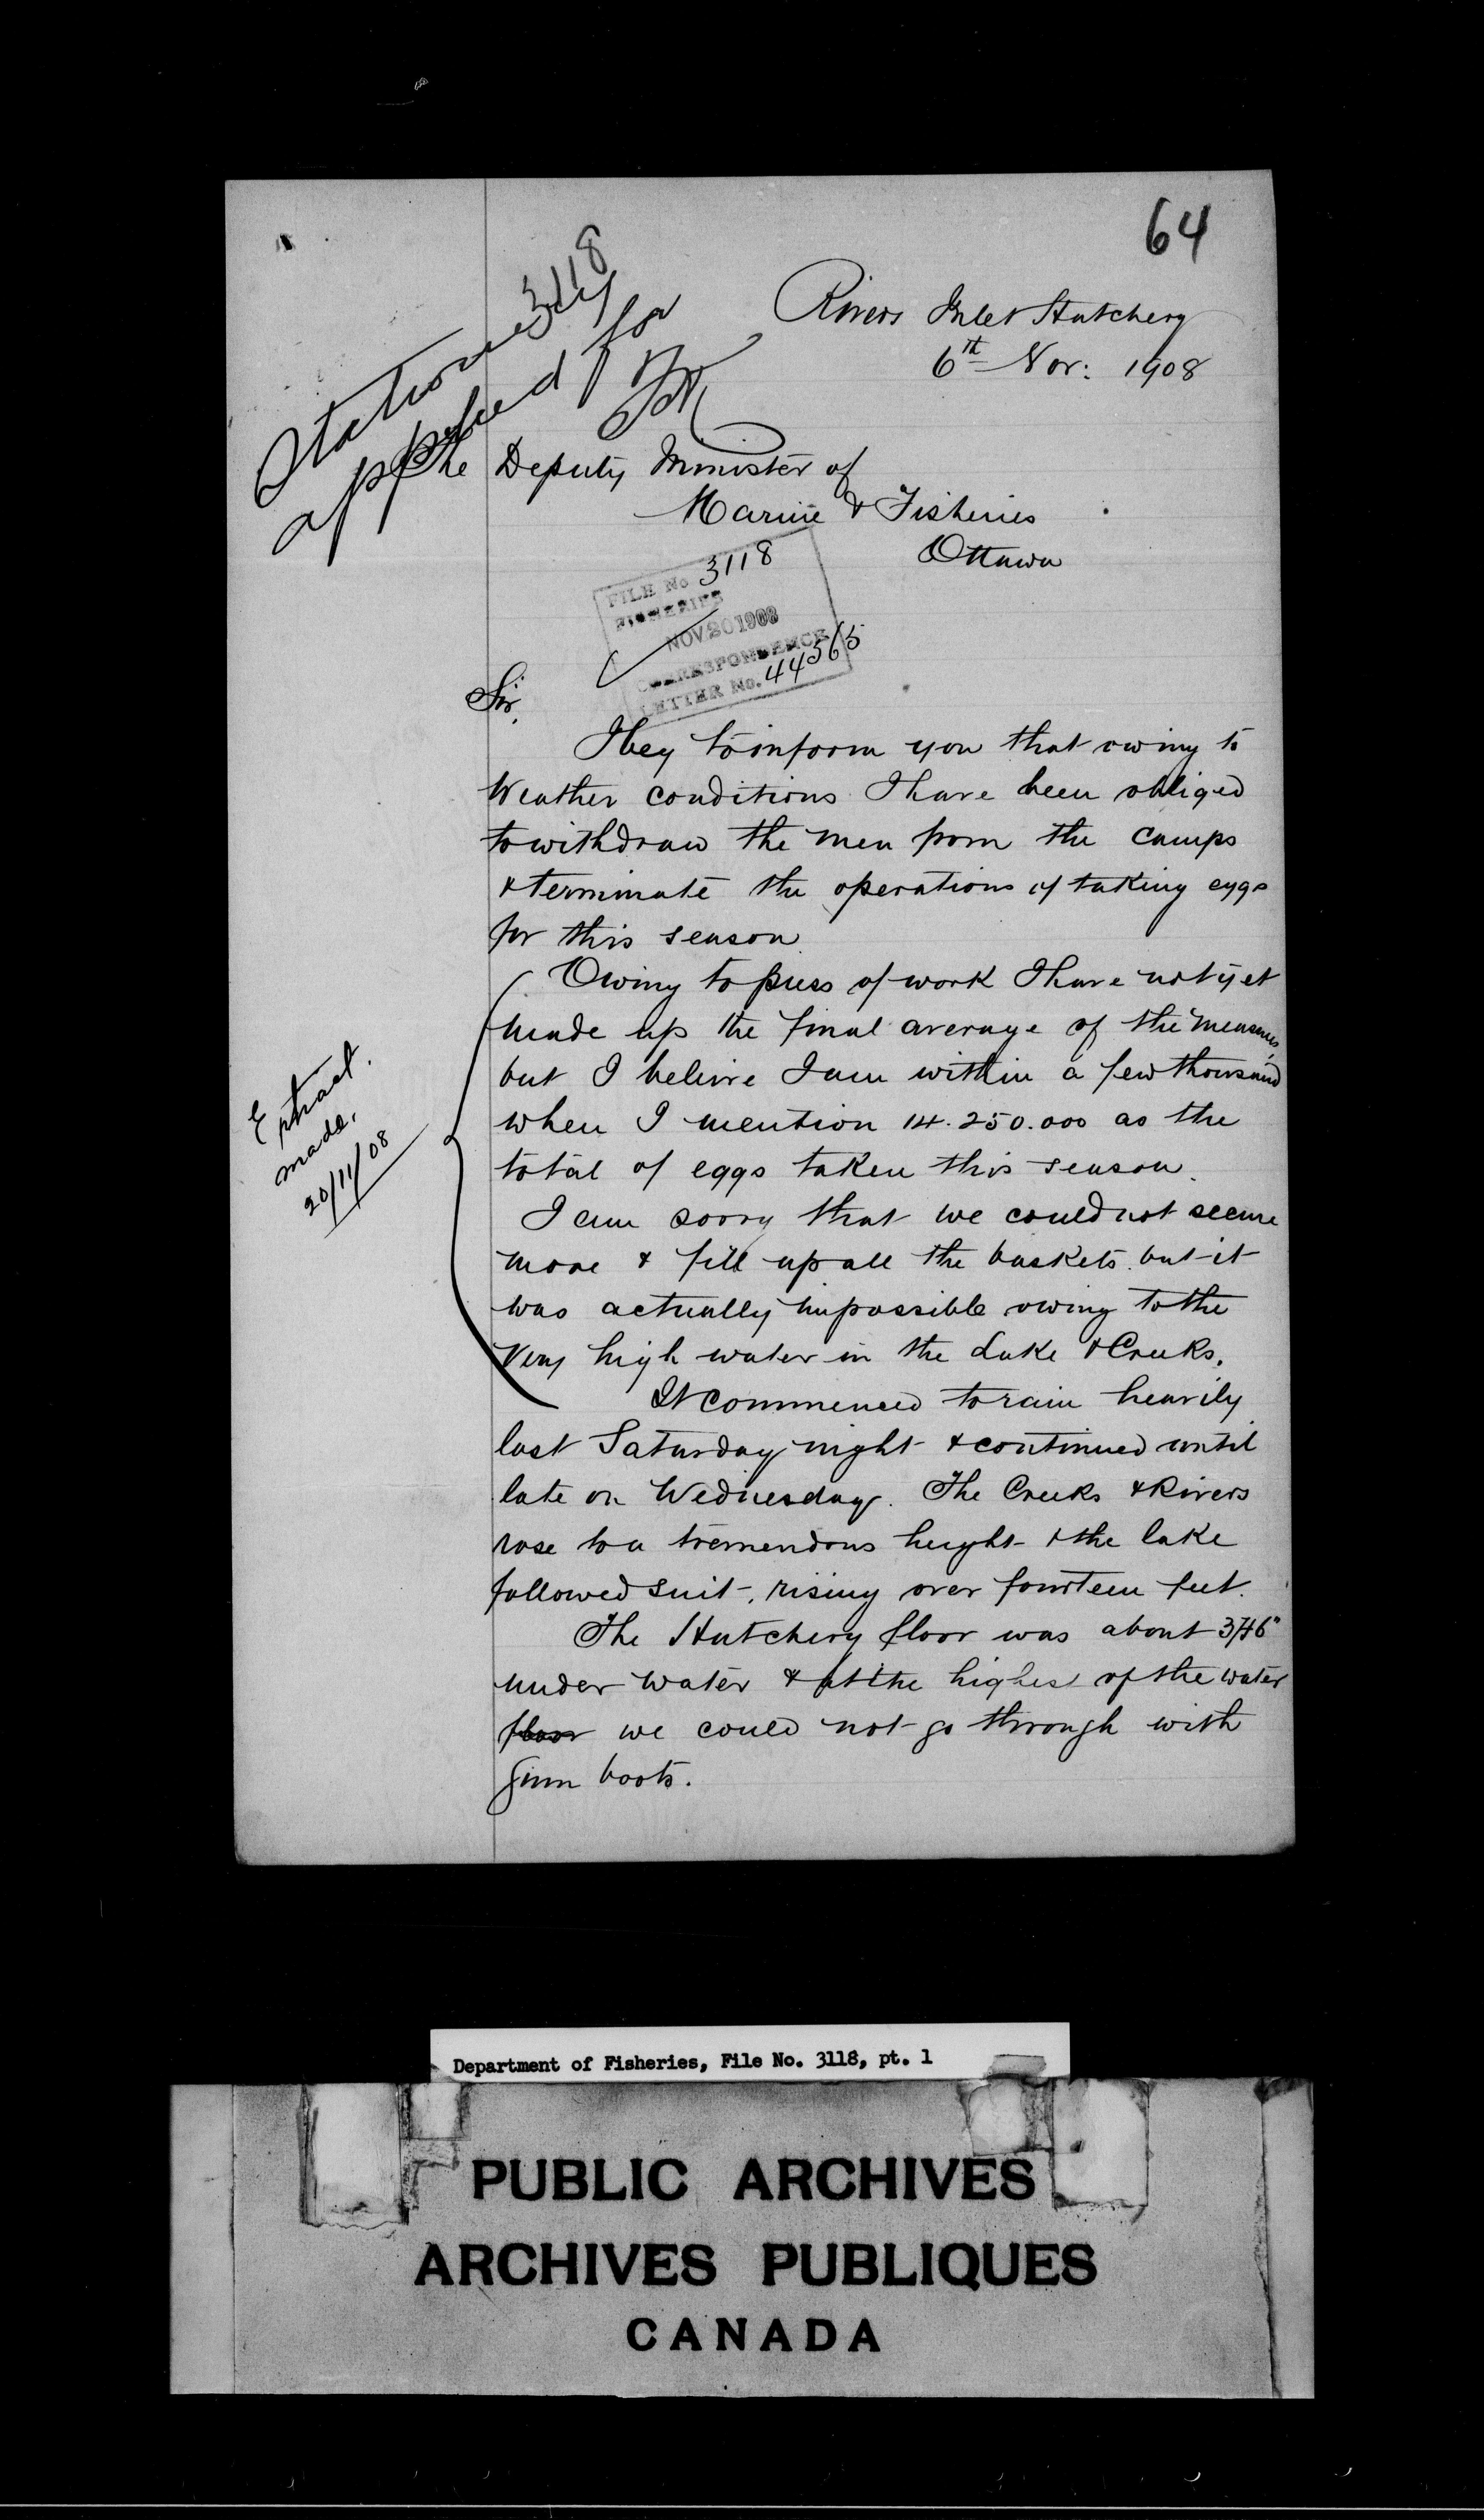 64
3118
Stationery
applied for
Rivers Inlet Hatchery
6th Nov: 1908
The Deputy Minister of
Marine & Fisheries
Ottawa
FILE No 3118
FISHERIES
NOV 20 1908
CORRESPONDENCE
LETTER No. 44565
Sir,
I beg to inform you that owing to
Weather conditions I have been obliged
to withdraw the men from the camps
& terminate the operations of taking eggs
for this season.
Owing to press of work I have not yet
made up the final average of the measures
but I believe I am within a few thousand
when I mention 14.250.000 as the
total of eggs taken this season.
Extract
made,
20/11/08
I am sorry that we could not secure
more & fill up all the baskets. but it
was actually impossible owing to the
very high water in the Lake & Creeks.
It commenced to rain heavily
last Saturday night & continued until
late on Wednesday. The Creeks & Rivers
rose to a tremendous height & the lake
followed suit, rising over fourteen feet.
The Hatchery floor was about 3ft 6"
under water & at the highest of the water
floor we could not go through with
Gum boots.
Department of Fisheries, File No. 3118, pt. 1
PUBLIC ARCHIVES
ARCHIVES PUBLIQUES
CANADA